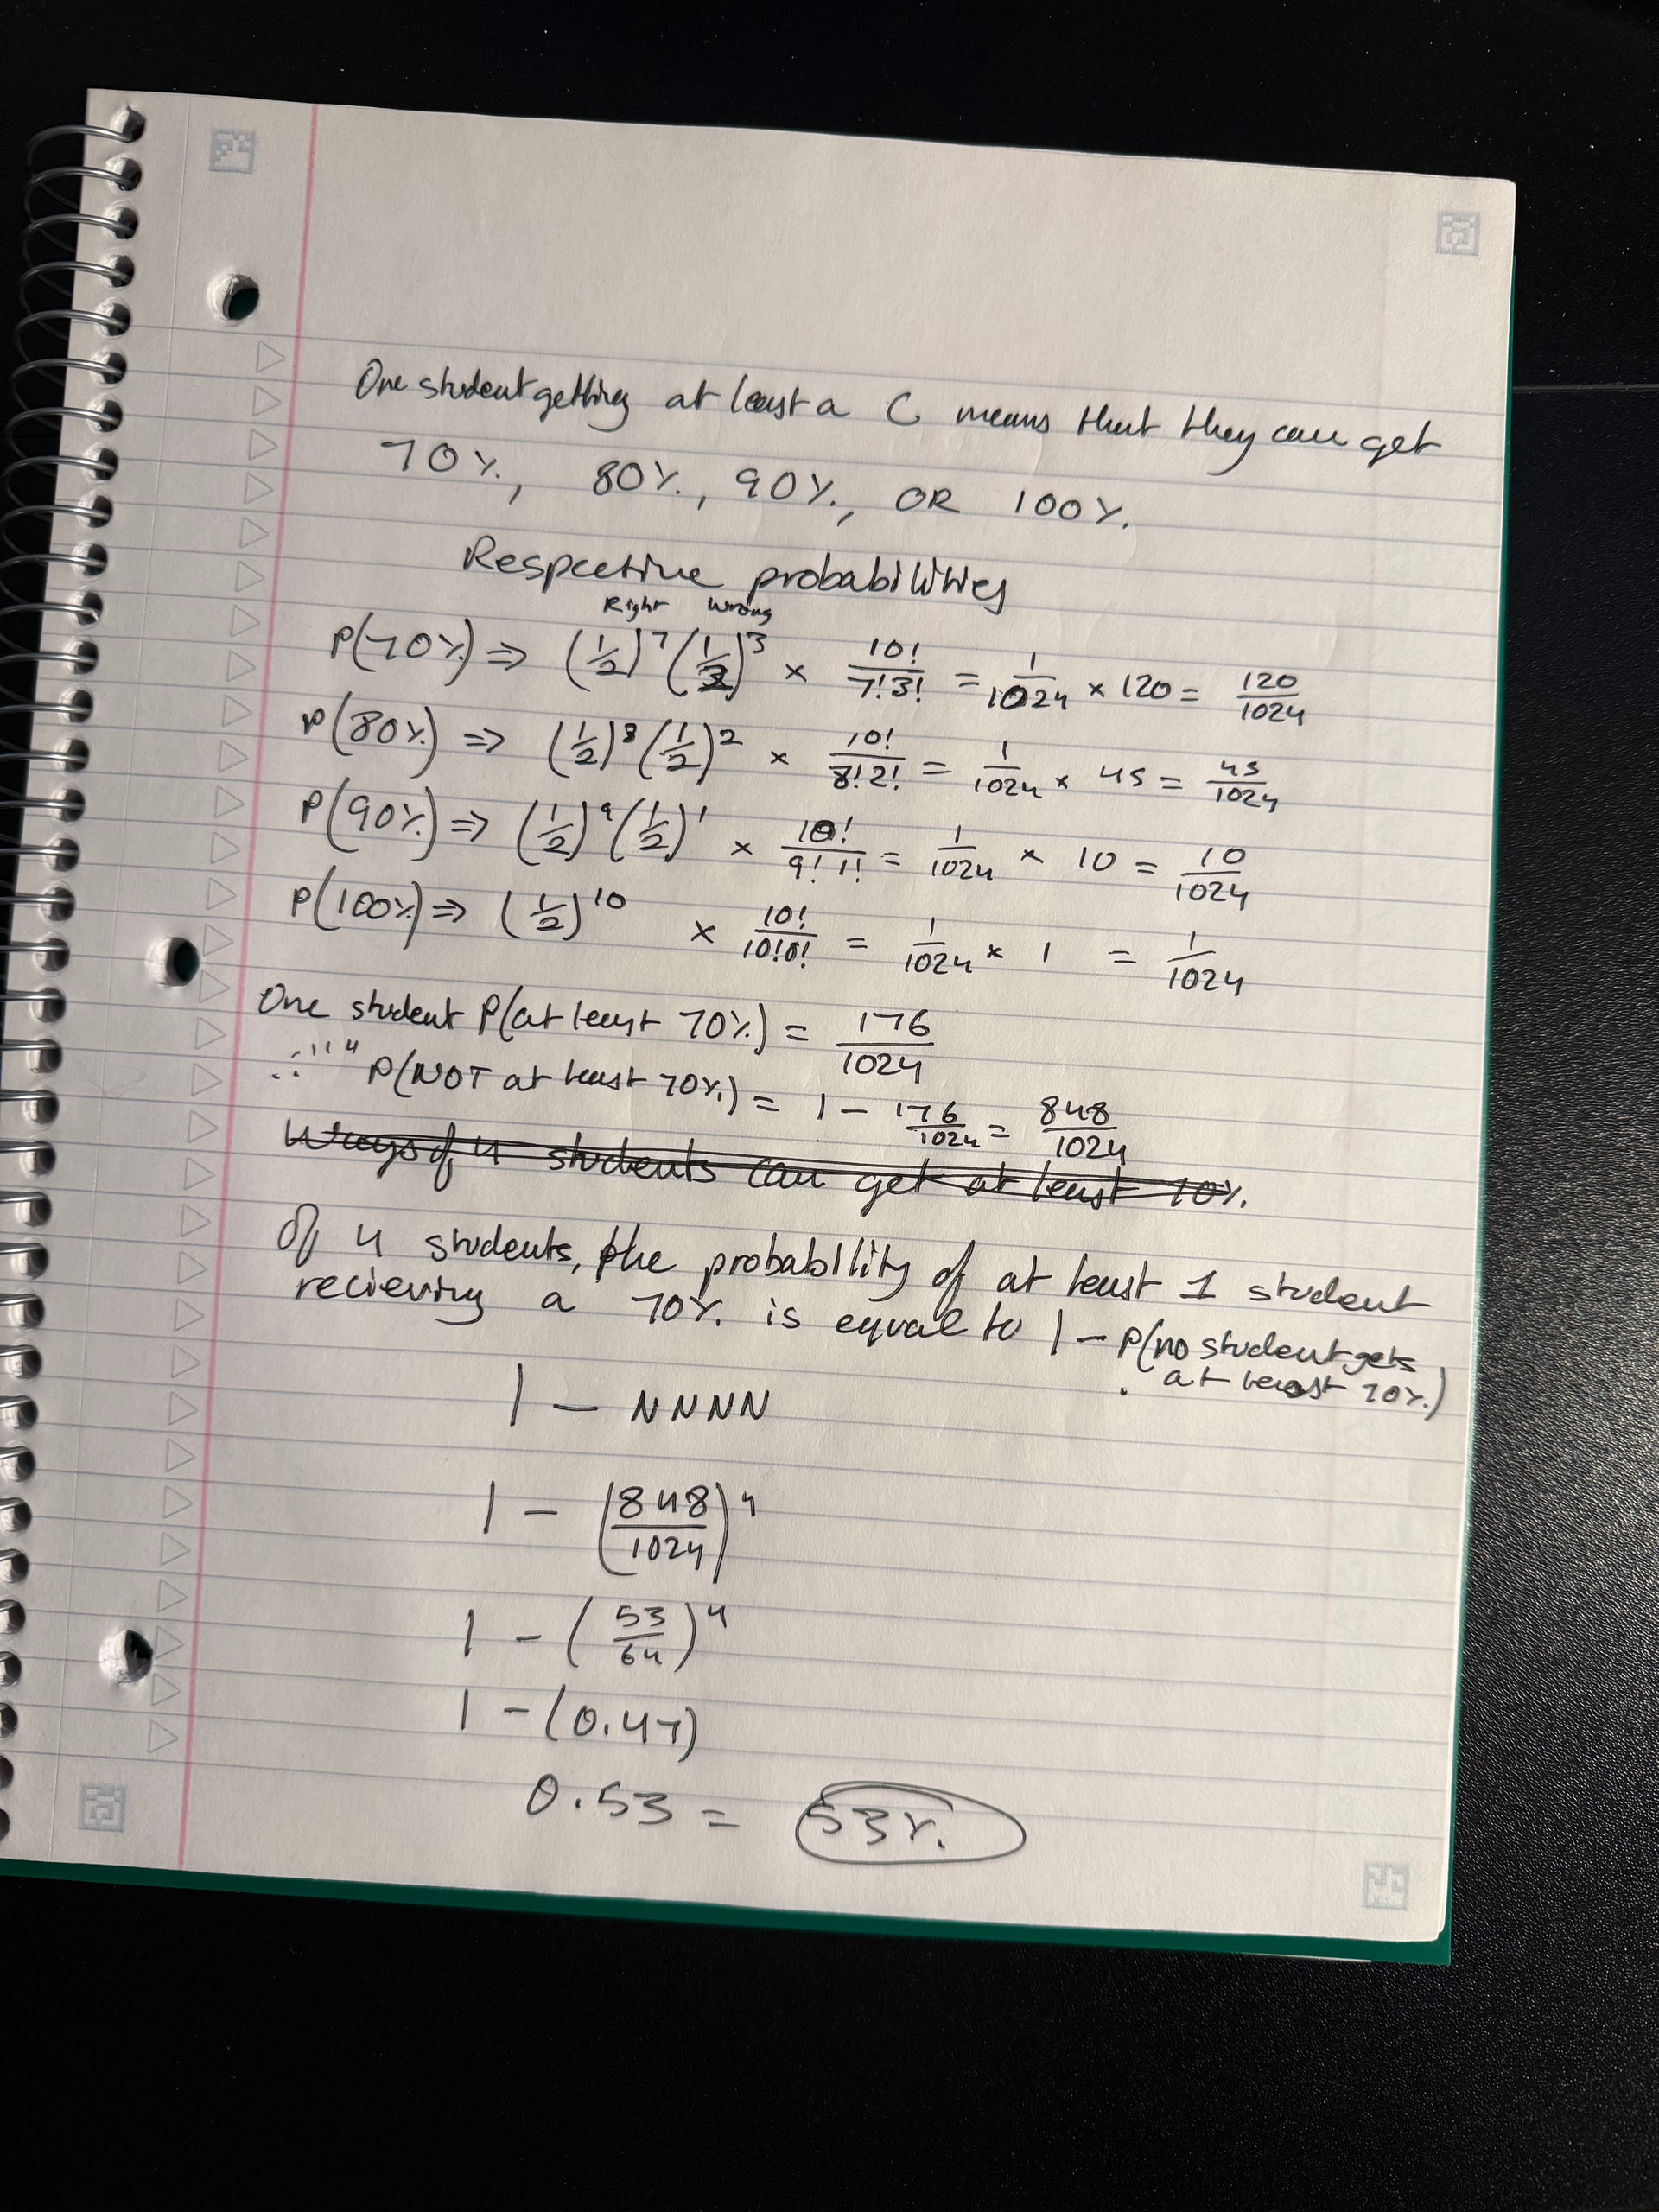 One student getting at least a C means that they can get
70%, 80%, 90%, OR 100%.
Respective probabilities
Right Wrong
P(70%) => (1/2)^7 (1/2)^3 × 10!/7!3! = 1/1024 × 120 = 120/1024
P(80%) => (1/2)^8 (1/2)^2 × 10!/8!2! = 1/1024 × 45 = 45/1024
P(90%) => (1/2)^9 (1/2)^1 × 10!/9!1! = 1/1024 × 10 = 10/1024
P(100%) => (1/2)^10 × 10!/10!0! = 1/1024 × 1 = 1/1024
One student P(at least 70%) = 176/1024
∴ " " P(NOT at least 70%) = 1 - 176/1024 = 848/1024
Ways of 4 students can get at least 70%.
Of 4 students, the probability of at least 1 student
recieving a 70% is equal to 1 - P(no student gets
at least 70%)
1 - NNNN
1 - (848/1024)^4
1 - (53/64)^4
1 - (0.47)
0.53 = 53%